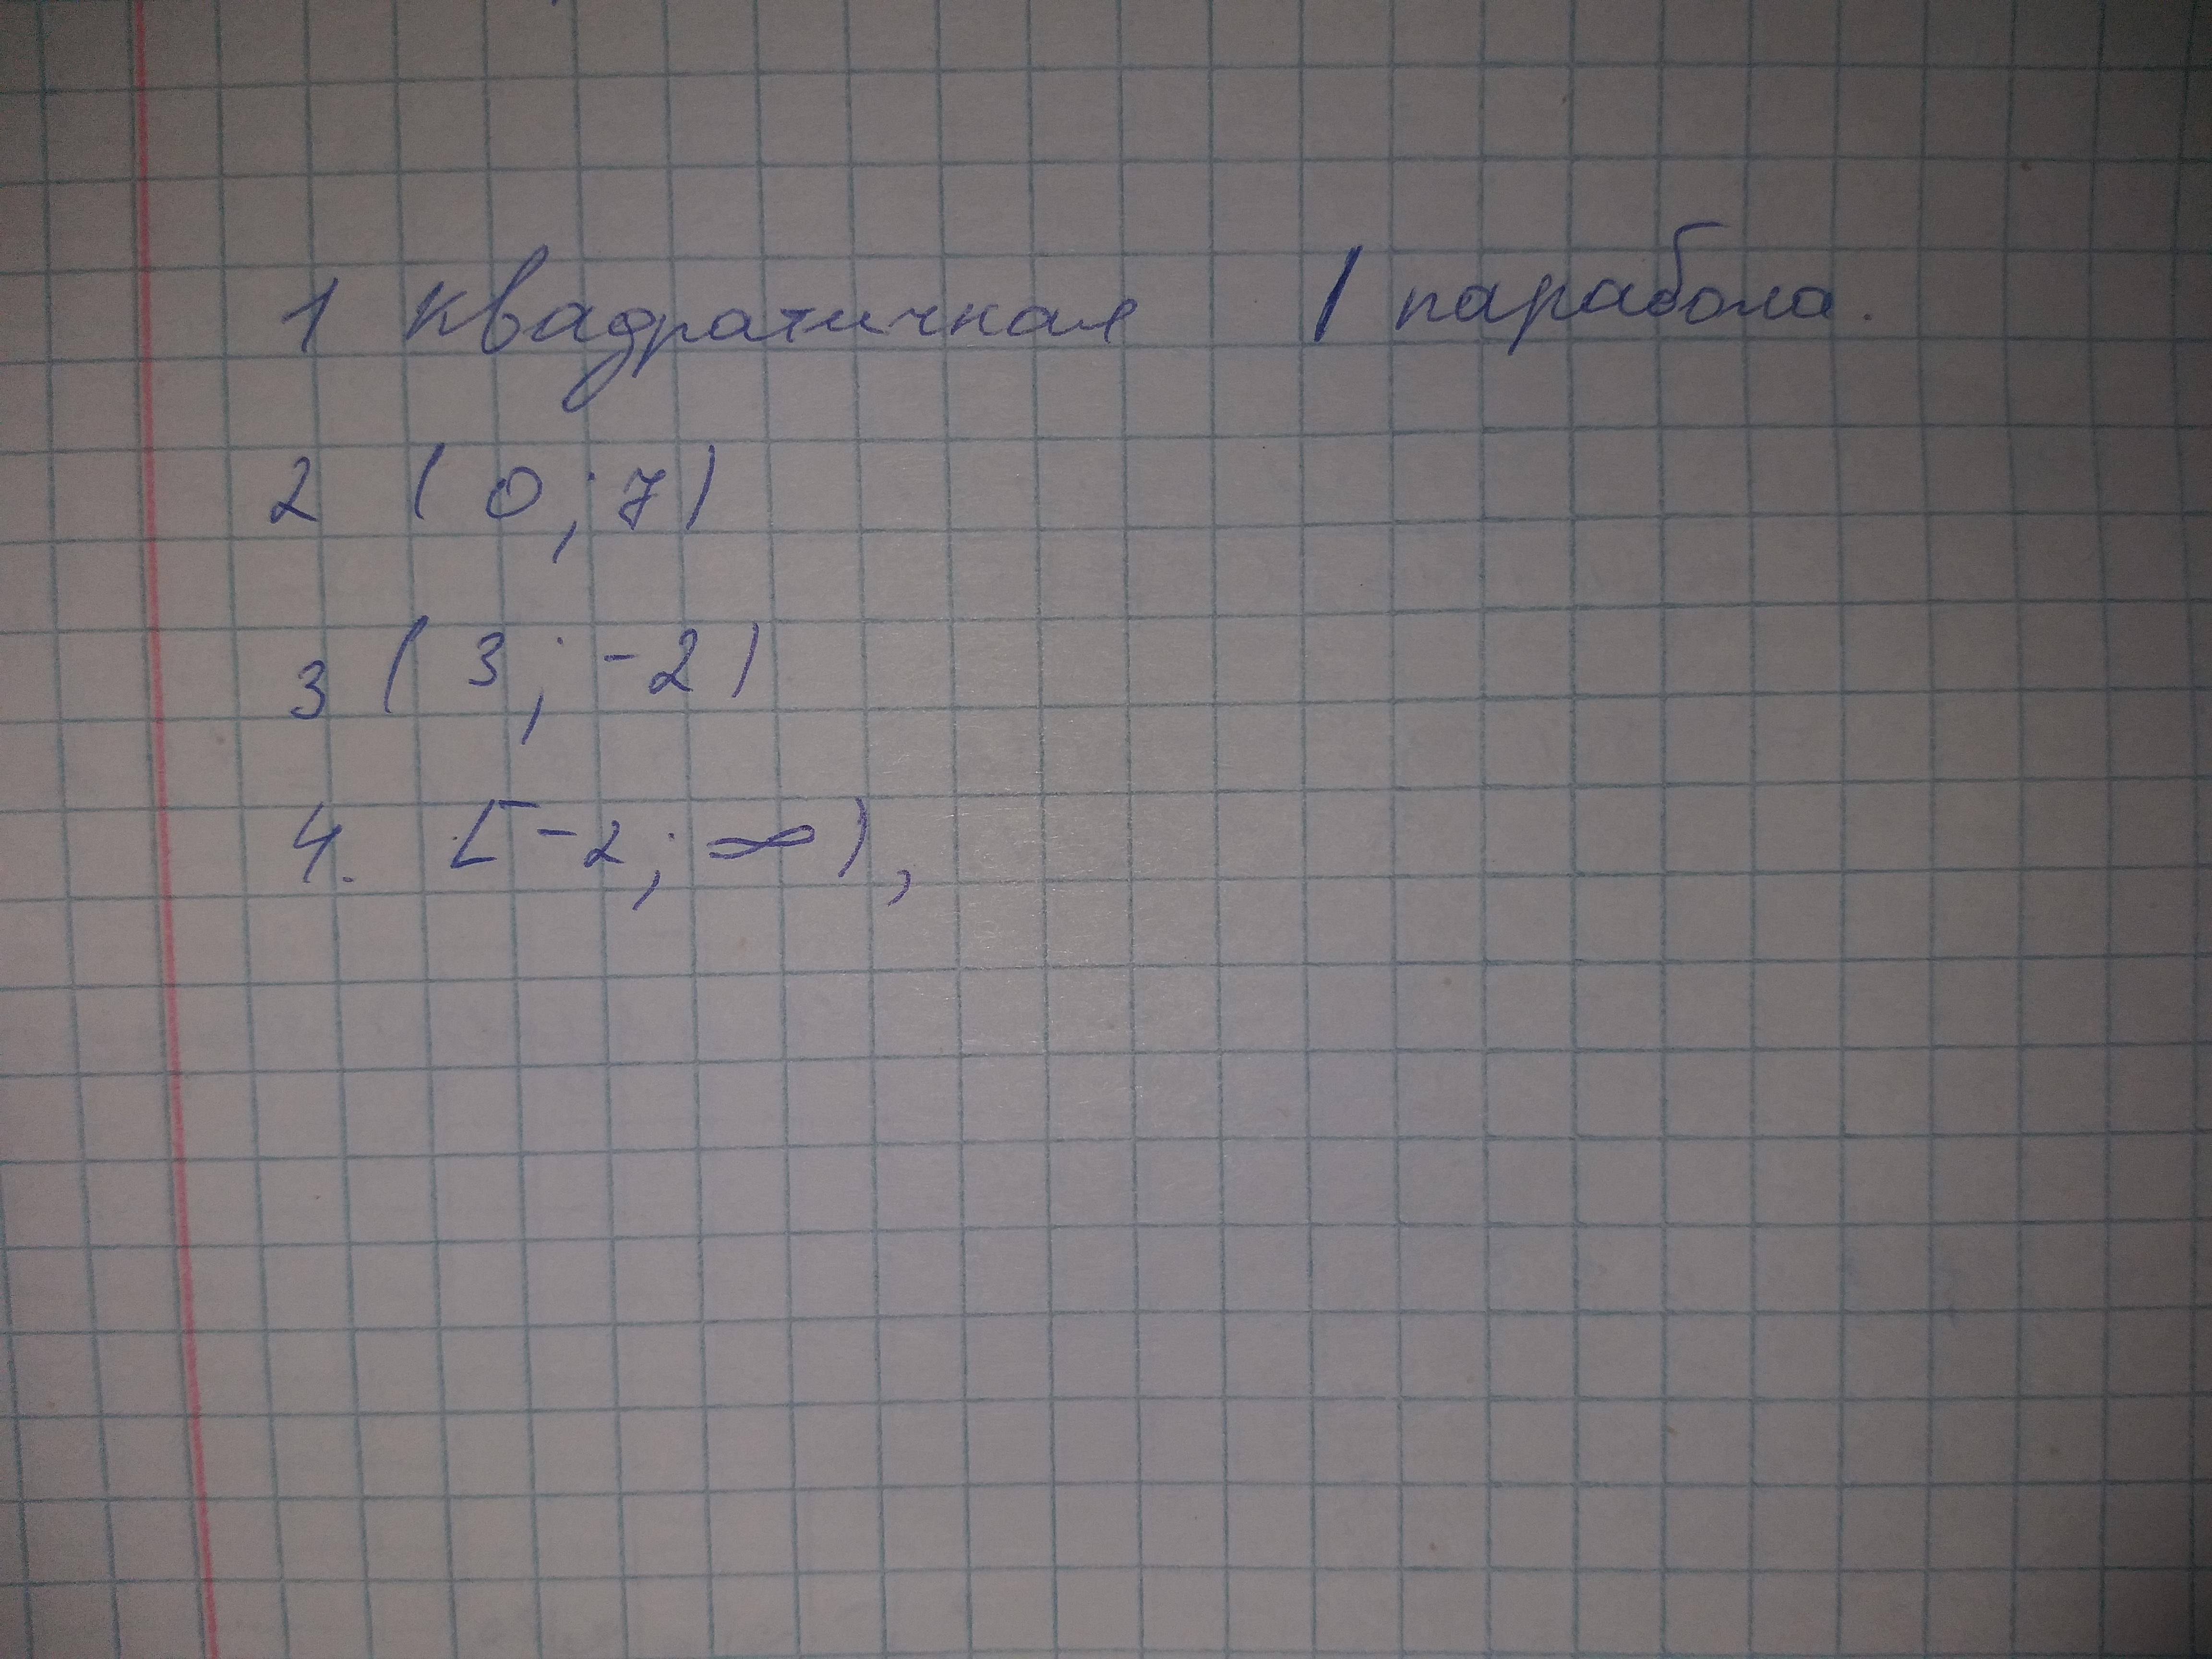 1 квадратичная / парабола.
2 (0; 7)
3 (3; -2)
4. [-2; ∞),